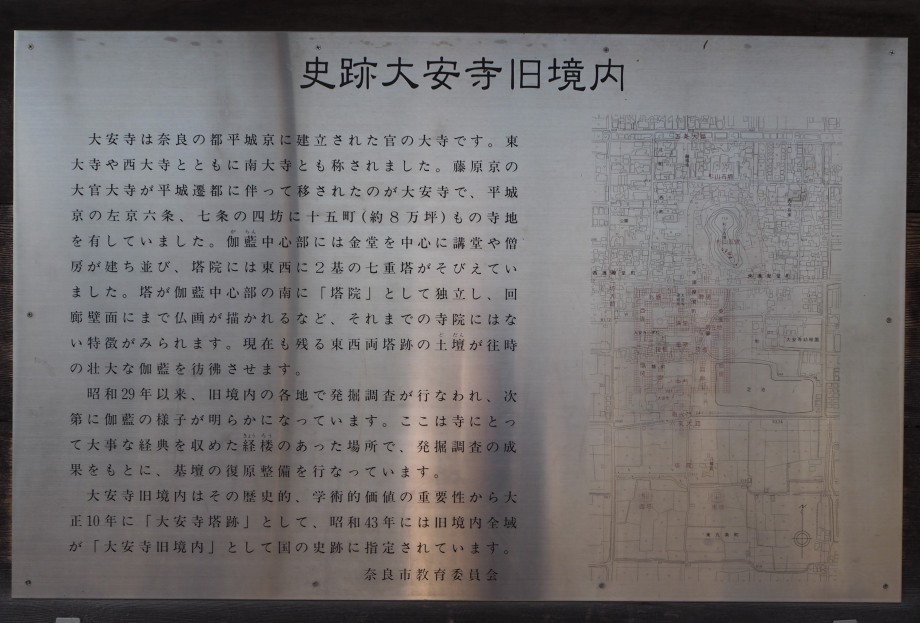 史跡大安寺旧境内
大安寺は奈良の都平城京に建立された官の大寺です。東
大寺や西大寺とともに南大寺とも称されました。藤原京の
大官大寺が平城遷都に伴って移されたのが大安寺で、平城
京の左京六条、七条の四坊に十五町(約8万坪)もの寺地
を有していました。伽藍中心部には金堂を中心に講堂や僧
房が建ち並び、塔院には東西に2基の七重塔がそびえてい
ました。塔が伽藍中心部の南に「塔院」として独立し、回
廊壁面にまで仏画が描かれるなど、それまでの寺院にはな
い特徴がみられます。現在も残る東西両塔跡の土壇が往時
の壮大な伽藍を彷彿させます。
昭和29年以来、旧境内の各地で発掘調査が行なわれ、次
第に伽藍の様子が明らかになっています。ここは寺にとっ
て大事な経典を収めた経楼のあった場所で、発掘調査の成
果をもとに、基壇の復原整備を行なっています。
大安寺旧境内はその歴史的、学術的価値の重要性から大
正10年に「大安寺塔跡」として、昭和43年には旧境内全域
が「大安寺旧境内」として国の史跡に指定されています。
奈良市教育委員会